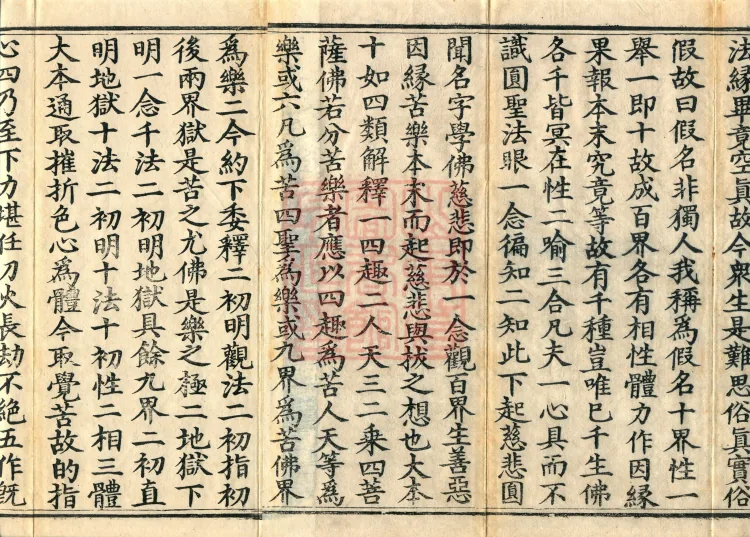 法縁畢竟空真故今衆生是難思俗真實俗
假故曰假名非獨人我稱為假名十界性一
舉一即十故成百界各有相性體力作因縁
果報本末究竟等故有千種豈唯巳千生佛
各千皆冥在性二喻三合凡夫一心具而不
識圓聖法眼一念徧知二知此下起慈悲圓
聞名字學佛慈悲即於一念觀百界生善惡
因縁苦樂本末而起慈悲與拔之想也大本
十如四類解釋一四趣二人天三二乘四菩
薩佛若分苦樂者應以四趣為苦人天等為
樂或六凡為苦四聖為樂或九界為苦佛界
為樂二今約下委釋二初明觀法二初指初
後兩界獄是苦之尤佛是樂之極二地獄下
明一念千法二初明地獄具餘九界二初直
明地獄十法二初明十法十初性二相三體
大本通取摧折色心為體今取覺苦故的指
心四乃至下力堪任刀火長劫不絕五作既